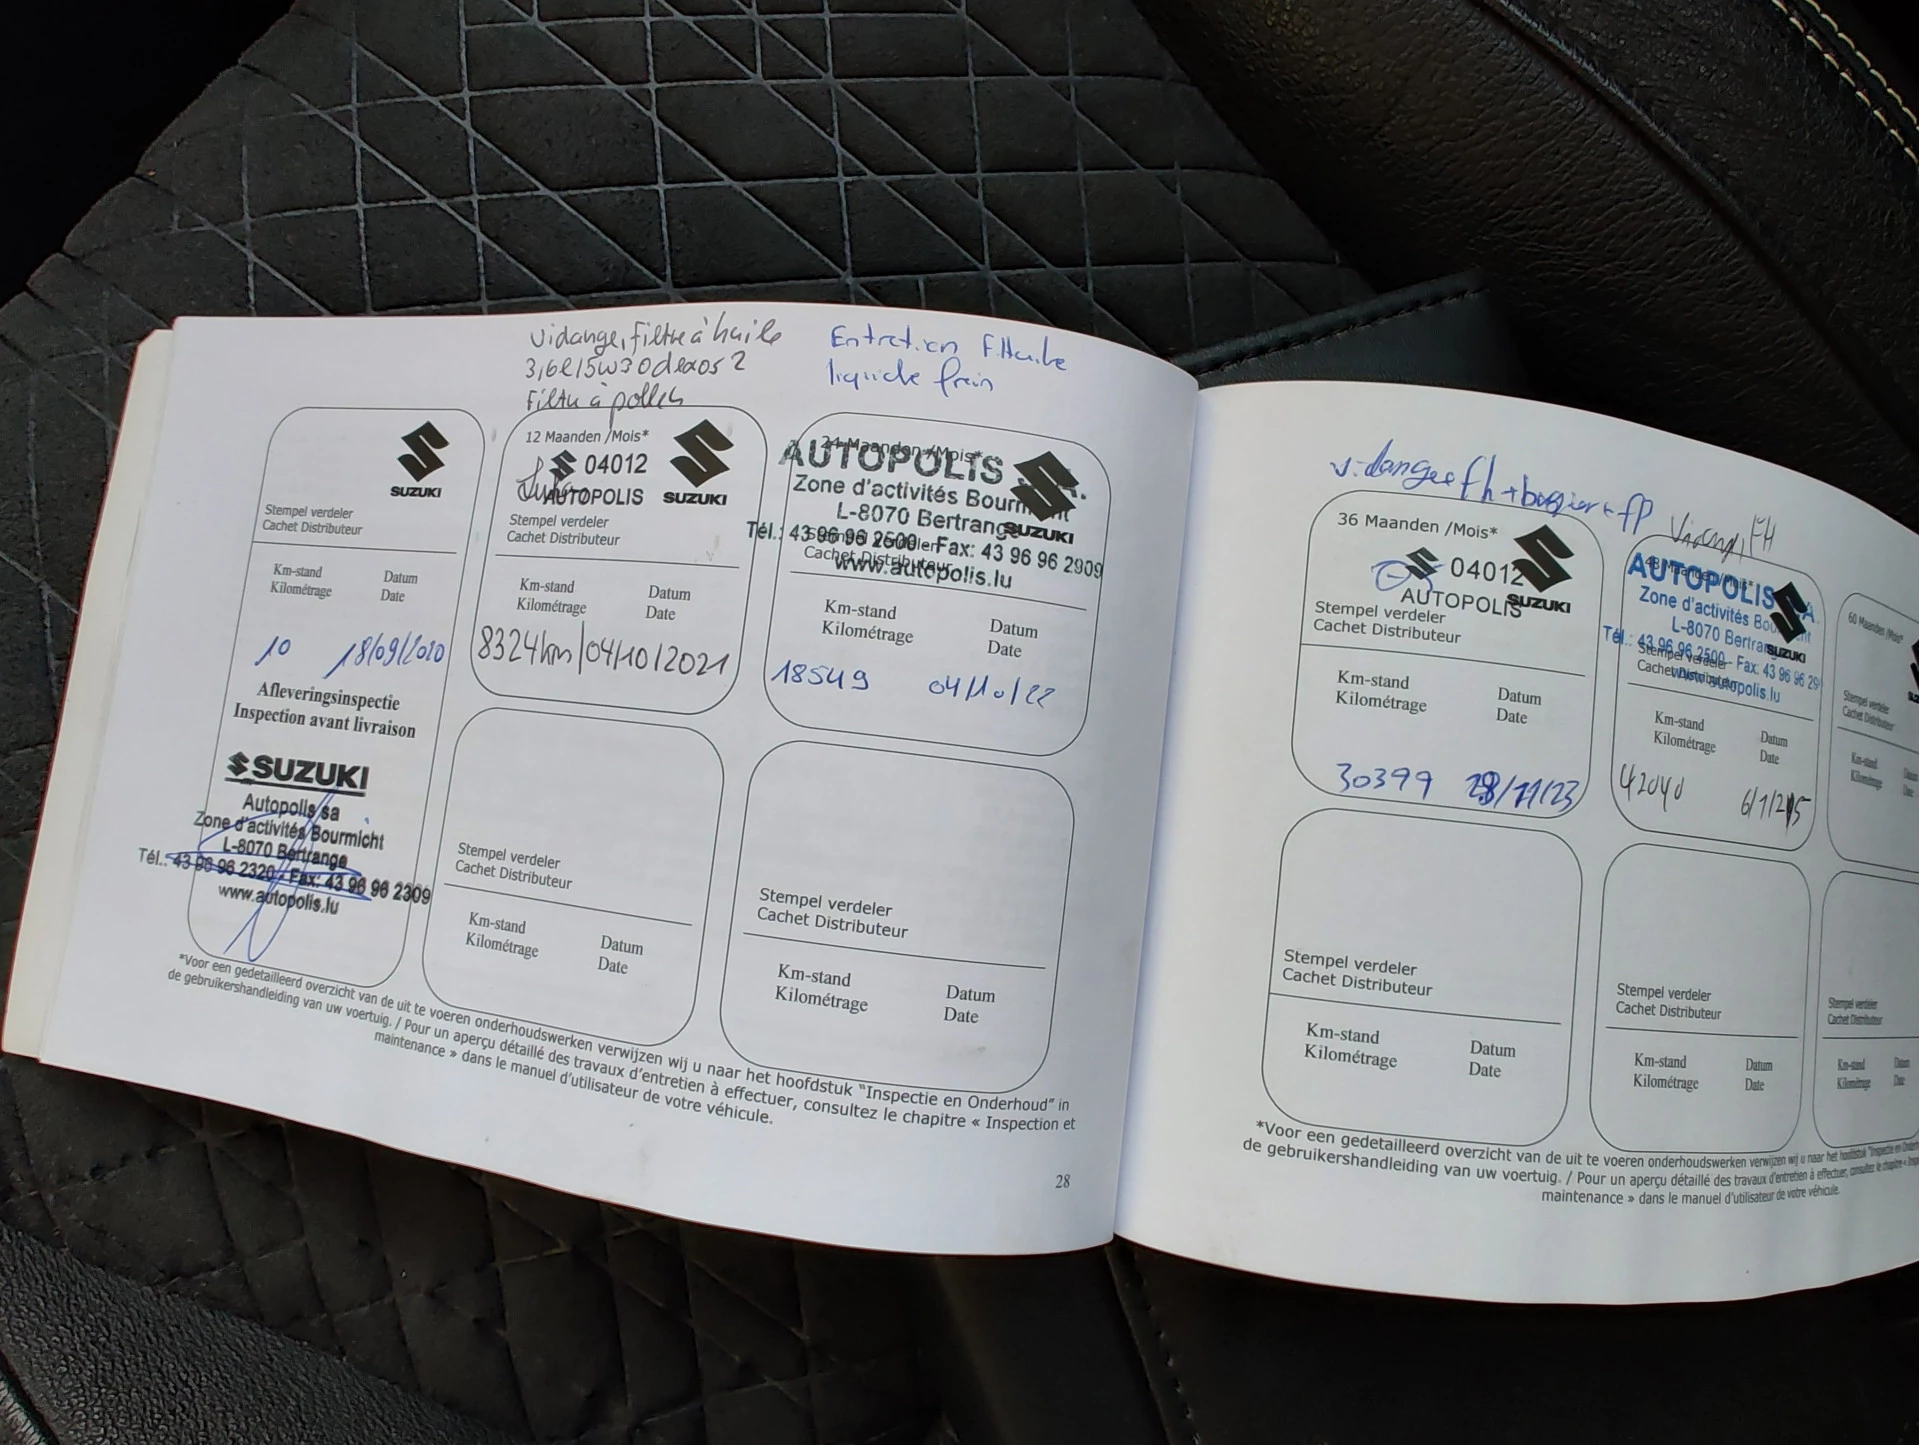 Vidange, Filtre à huile
3,6l 5w30 dexos 2
Filtre à pollen
Entretien F. Huile
liquide frein
SUZUKI
Stempel verdeler
Cachet Distributeur
Km-stand Datum
Kilométrage Date
10 18/09/2020
Afleveringsinspectie
Inspection avant livraison
SUZUKI
Autopolis sa
Zone d'activités Bourmicht
L-8070 Bertrange
Tél.: 43 96 96 2320 - Fax: 43 96 96 2309
www.autopolis.lu
12 Maanden /Mois*
04012
AUTOPOLIS SUZUKI
Stempel verdeler
Cachet Distributeur
Km-stand Datum
Kilométrage Date
8324km 04/10/2021
24 Maanden /Mois*
AUTOPOLIS S.A.
Zone d'activités Bourmicht
L-8070 Bertrange
SUZUKI
Tél.: 43 96 96 2500 - Fax: 43 96 96 2909
Stempel verdeler
Cachet Distributeur
www.autopolis.lu
Km-stand Datum
Kilométrage Date
18549 04/10/22
Stempel verdeler
Cachet Distributeur
Km-stand Datum
Kilométrage Date
Stempel verdeler
Cachet Distributeur
Km-stand Datum
Kilométrage Date
*Voor een gedetailleerd overzicht van de uit te voeren onderhoudswerken verwijzen wij u naar het hoofdstuk "Inspectie en Onderhoud" in
de gebruikershandleiding van uw voertuig. / Pour un aperçu détaillé des travaux d'entretien à effectuer, consultez le chapitre « Inspection et
maintenance » dans le manuel d'utilisateur de votre véhicule.
28
vidange fh + bougier + fp
36 Maanden /Mois*
04012
AUTOPOLIS SUZUKI
Stempel verdeler
Cachet Distributeur
Km-stand Datum
Kilométrage Date
30399 28/11/23
FH
48 Maanden /Mois*
AUTOPOLIS S.A.
Zone d'activités Bourmicht
L-8070 Bertrange
SUZUKI
Tél.: 43 96 96 2500 - Fax: 43 96 96 29
Stempel verdeler
Cachet Distributeur
www.autopolis.lu
Km-stand Datum
Kilométrage Date
42040
60 Maanden /Mois*
Stempel verdeler
Cachet Distributeur
Km-stand
Kilométrage
Stempel verdeler
Cachet Distributeur
Km-stand Datum
Kilométrage Date
Stempel verdeler
Cachet Distributeur
Km-stand Datum
Kilométrage Date
Stempel verdeler
Cachet Distributeur
Km-stand Datum
Kilométrage Date
*Voor een gedetailleerd overzicht van de uit te voeren onderhoudswerken verwijzen wij u naar het hoofdstuk "Inspectie en
de gebruikershandleiding van uw voertuig. / Pour un aperçu détaillé des travaux d'entretien à effectuer, consultez le chapitre «
maintenance » dans le manuel d'utilisateur de votre véhicule.